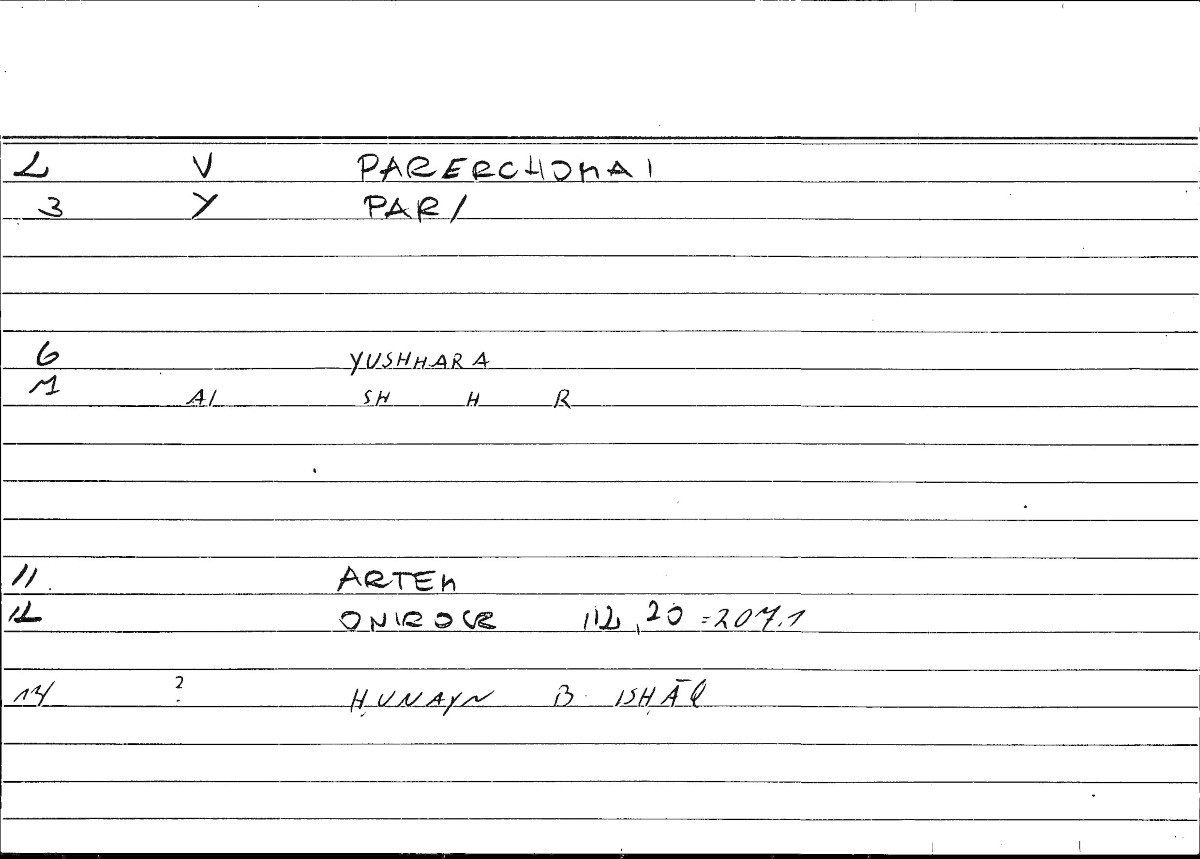 2 V PARERCHOMAI
3 Y PAR/
6 YUSHHARA
AI SH H R
11 ARTEM
12 ONIROCR 112,20 =207.1
14 ? ḤUNAYN B. ISḤĀQ